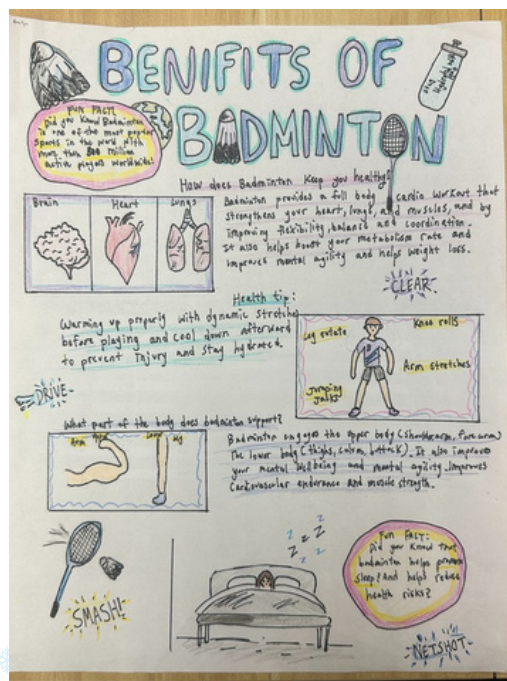 BENIFITS OF
BADMINTON
FUN FACT!
Did you know Badminton
is one of the most popular
sports in the world with
more than 300 million
active players worldwide!
How does Badminton keep you healthy?
Brain
Heart
Lungs
Badminton provides a full body cardio workout that
strengthens your heart, lungs, and muscles, and by
improving flexibility, balance and coordination.
It also helps boost your metabolism rate and
improves mental agility and helps weight loss.
CLEAR
Health tip:
Warming up properly with dynamic stretches
before playing and cool down afterward
to prevent injury and stay hydrated.
Leg rotate
Knee rolls
Arm stretches
Jumping
jacks
DRIVE
What part of the body does badminton support?
Arm
Leg
Badminton engages the upper body (shoulder, arm, forearm)
The lower body (thighs, calves, buttock). It also improves
your mental wellbeing and mental agility. Improves
Cardiovascular endurance and muscle strength.
SMASH!
z z z z z z
Fun FACT:
Did you know that
badminton helps promote
sleep? And helps reduce
health risks?
NETSHOT